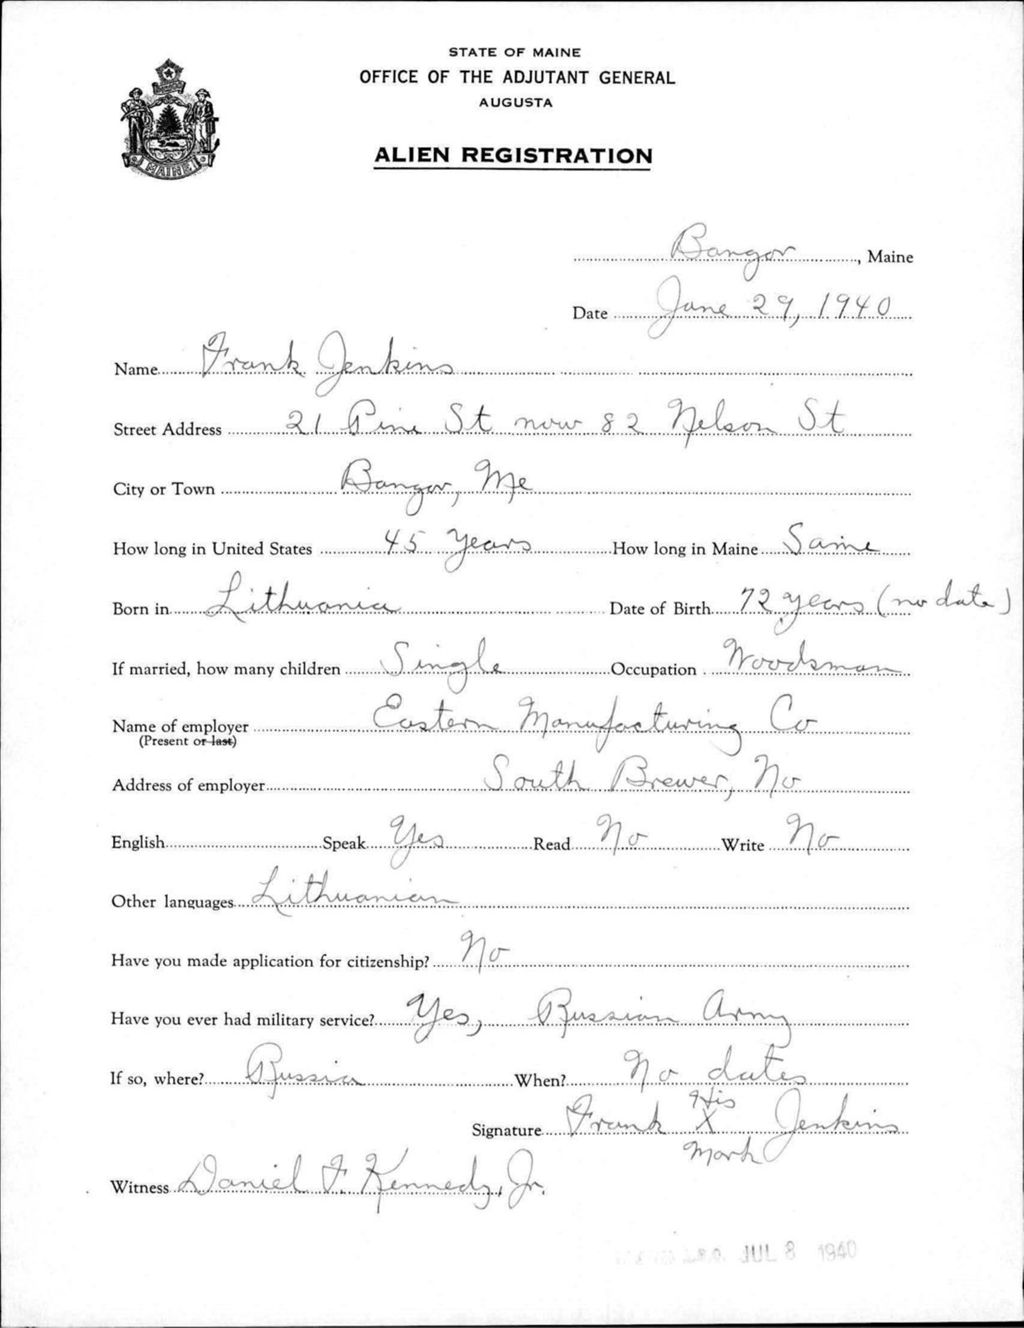 STATE OF MAINE
OFFICE OF THE ADJUTANT GENERAL
AUGUSTA
ALIEN REGISTRATION
MAINE
Bangor, Maine
Date June 29, 1940
Name Frank Jenkins
Street Address 21 Pine St now 82 Nelson St
City or Town Bangor, Me
How long in United States 45 years How long in Maine Same
Born in Lithuania Date of Birth 72 years (no date)
If married, how many children Single Occupation Woodsman
Name of employer Eastern Manufacturing Co
(Present or last)
Address of employer South Brewer, No
English Speak Yes Read No Write No
Other languages Lithuanian
Have you made application for citizenship? No
Have you ever had military service? Yes, Russian Army
If so, where? Russia When? No dates
His
Signature Frank X Jenkins
Mark
Witness Daniel F. Kennedy, Jr.
JUL 8 1940